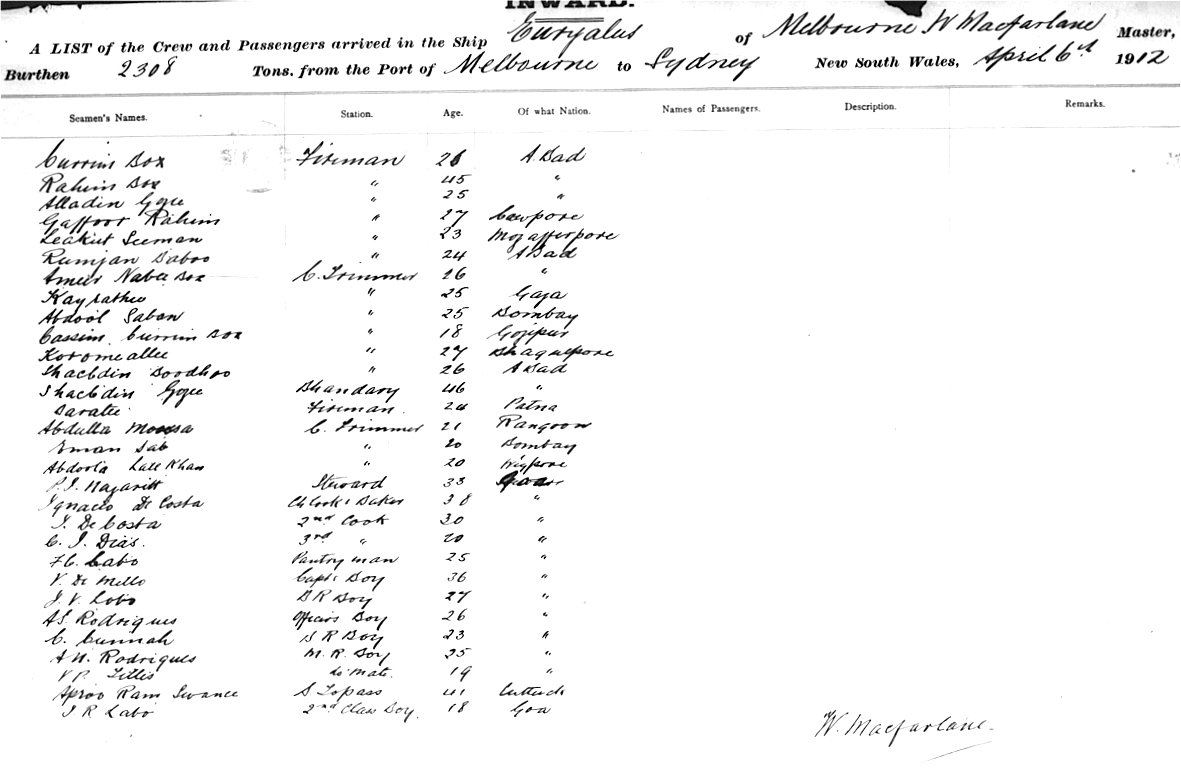 INWARD.
A LIST of the Crew and Passengers arrived in the Ship Euryalus of Melbourne W Macfarlane Master,
Burthen 2308 Tons. from the Port of Melbourne to Sydney New South Wales, April 6th 1912
Seamen's Names. Station. Age. Of what Nation. Names of Passengers. Description. Remarks.
Currim Box Fireman 26 A Bad
Rahim Box " 45 "
Alladin Gogee " 25 "
Gaffoor Rahim " 27 Cawpore
Leakut Seeman " 23 Mozafferpore
Rumjan Baboo " 24 A Bad
Ameer Nabee Box C. Trimmer 26 "
" 25 Gaja
Abdool Saban " 25 Bombay
Cassim Currim Box " 18 Gojipur
Koromeallee " 27 Bhagulpore
Shaebdin Boodhoo " 26 A Bad
Shaebdin Gogee Bhandary 46 "
Saratee Fireman. 24 Patna
Abdulla Moosa C. Trimmer 21 Rangoon
Eman Sab " 20 Bombay
Abdoola Lall Khan " 20
P.J. Nazaritt Steward 33
Ignacio De Costa Ch Cook & Baker 38 "
J. De Costa 2nd Cook 30 "
C. J. Dias. 3rd " 20 "
F.C. Labo Pantryman 25 "
V. De Mello Capts Boy 36 "
J. V. Lobo B R Boy 27 "
A.S. Rodrigues Officers Boy 26 "
C. Cunnah S R Boy 23 "
A.N. Rodrigues M. R. Boy 25 "
V P. Tellis do Mate. 19 "
Aproo Ram Swanee S Topass 41 Cuttuck
J R Labo 2nd Class Boy. 18 Goa
W. Macfarlane.